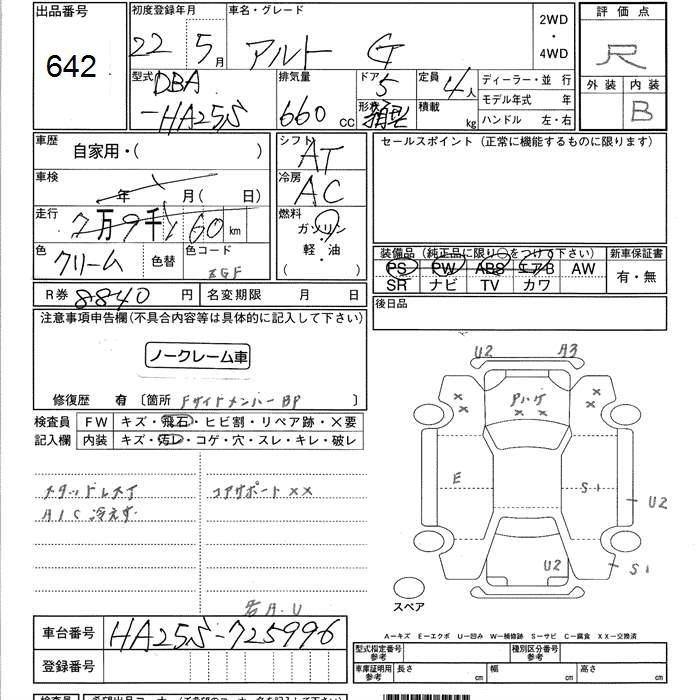 出品番号
642
初度登録年月
22 5月
車名・グレード
アルト G
2WD
・
4WD
評価点
R
外装 内装
B
型式
DBA
-HA25S
排気量
660 cc
ドア
5
形状
定員
4人
積載
kg
ディーラー・並行
モデル年式 年
ハンドル 左・右
車歴
自家用・( )
車検
年 月( 日)
走行
7万9千160km
色
クリーム
色替
色コード
ZGF
シフト
AT
冷房
AC
燃料
ガソリン
軽・油
( )
セールスポイント (正常に機能するものに限ります)
装備品 (純正品に限り○をつけて下さい)
PS PW ABS エアB AW
SR ナビ TV カワ
新車保証書
有・無
後日品
R券 8840円
名変期限 月 日
注意事項申告欄(不具合内容等は具体的に記入して下さい)
ノークレーム車
修復歴 有 〔箇所 FサイドメンバーBP
検査員
記入欄
FW キズ・飛石・ヒビ割・リペア跡・×要
内装 キズ・汚レ・コゲ・穴・スレ・キレ・破レ
スタッドレスT
A/C冷えず
コアサポートXX
若A.U
U2 A3
Pハゲ
× × × × × ×
E
S1
U2
U2
S1
スペア
A―キズ E―エクボ U―凹み W―補修跡 S―サビ C―腐食 XX―交換済
車台番号 HA25S-725996
登録番号
型式指定番号
参考
種別区分番号
参考
車庫証明用
参考
長さ cm
幅 cm
高さ cm
検査員